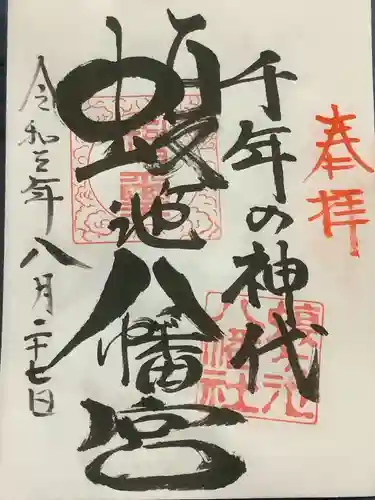 奉拝
千年の神代
蝮池八幡宮
令和元年八月二十七日
八幡社